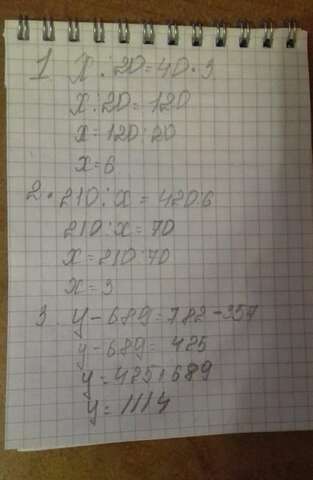 1 x : 20 = 40 · 3
x : 20 = 120
x = 120 : 20
x = 6
2. 210 : x = 420 : 6
210 : x = 70
x = 210 : 70
x = 3
3. y - 689 = 782 - 357
y - 689 = 425
y = 425 + 689
y = 1114